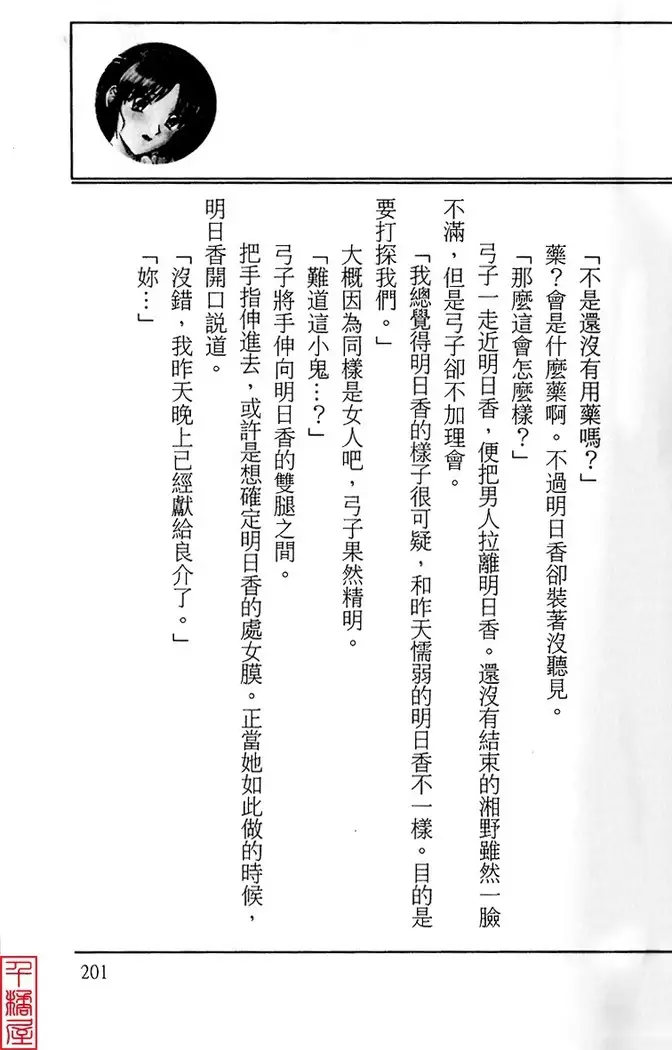 「不是還沒有用藥嗎？」
藥？會是什麼藥啊。不過明日香卻裝著沒聽見。
「那麼這會怎麼樣？」
弓子一走近明日香，便把男人拉離明日香。還沒有結束的湘野雖然一臉
不滿，但是弓子卻不加理會。
「我總覺得明日香的樣子很可疑，和昨天懦弱的明日香不一樣。目的是
要打探我們。」
大概因為同樣是女人吧，弓子果然精明。
「難道這小鬼…？」
弓子將手伸向明日香的雙腿之間。
把手指伸進去，或許是想確定明日香的處女膜。正當她如此做的時候，
明日香開口說道。
「沒錯，我昨天晚上已經獻給良介了。」
「妳…」
201
千橘屋